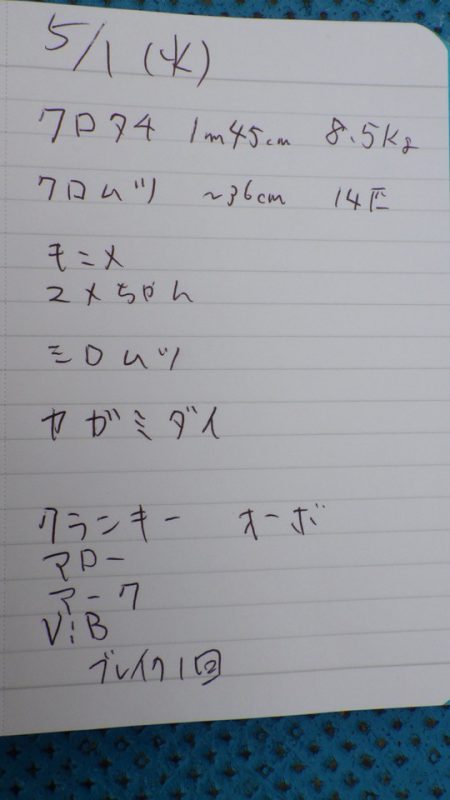 5/1 (水)
クロタチ 1m45cm 8.5kg
クロムツ ~36cm 14匹
モニメ
ユメちゃん
シロムツ
カガミダイ
クランキー オーボ
マロー
アーク
ViB
ブレイク1回